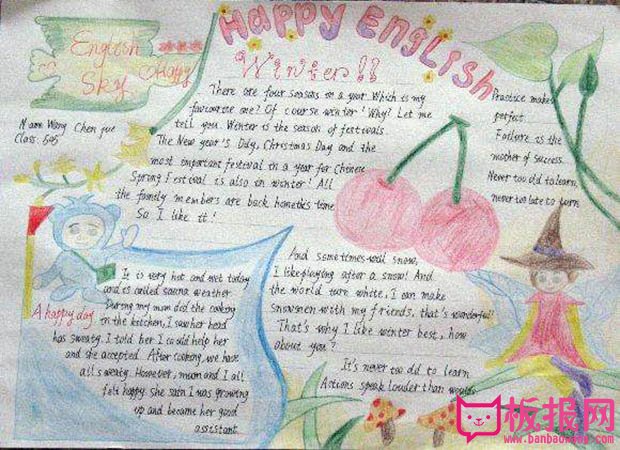 HAPPY ENGLISH
English
Sky
Happy
Winter!!
Name Wang Chen yue
Class: 505
There are four seasons in a year. Which is my
favourite one? Of course winter! Why? Let me
tell you. Winter is the season of festivals
The New year's Day, Christmas Day and the
most important festival in a year for Chinese
Spring Festival is also in winter! All
the family members are back
So I like it!
Practice makes
perfect.
Failure is the
mother of success.
Never too old to learn,
never too late to turn
And sometimes will snow,
I like playing after a snow! And
the world turn white, I can make
snowmen with my friends, that's wonderful!
That's why I like winter best, how
about you?
It's never too old to learn
Actions speak louder than words
A happy day
It is very hot and wet today
and is called sauna weather
During my mum did the cooking
in the kitchen, I saw her head
has sweaty. I told her I could help her
and she accepted. After cooking, we have
all sweaty. However, mum and I all
felt happy. She sain I was growing
up and became her good
assistant.
板报网
www.banbaowang.com